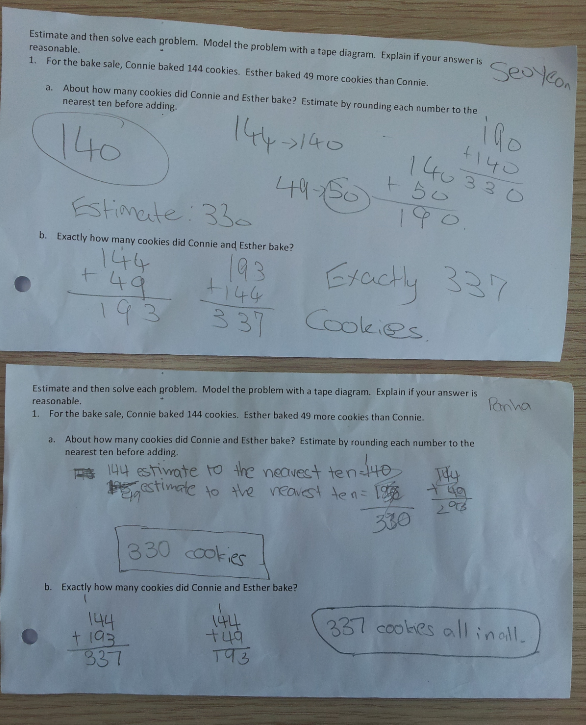 Estimate and then solve each problem. Model the problem with a tape diagram. Explain if your answer is
reasonable.
Seoyeon
1. For the bake sale, Connie baked 144 cookies. Esther baked 49 more cookies than Connie.
a. About how many cookies did Connie and Esther bake? Estimate by rounding each number to the
nearest ten before adding.
140
144→140
49→50
140
+ 50
190.
190
+140
330
Estimate: 330
b. Exactly how many cookies did Connie and Esther bake?
144
+ 49
193
193
+144
337
Exactly 337
Cookies.
Estimate and then solve each problem. Model the problem with a tape diagram. Explain if your answer is
reasonable.
Panha
1. For the bake sale, Connie baked 144 cookies. Esther baked 49 more cookies than Connie.
a. About how many cookies did Connie and Esther bake? Estimate by rounding each number to the
nearest ten before adding.
144 estimate to the nearest ten=140
estimate to the nearest ten=
330
144
+ 49
330 cookies
b. Exactly how many cookies did Connie and Esther bake?
1
144
+ 193
337
1
144
+49
193
337 cookies all in all.